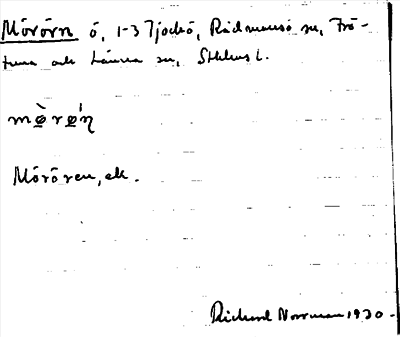 Mörörn ö, 1-3 Tjockö, Rådmansö sn, Frö-
tuna och Länna sn, Sthlms l.
mø̀rø̀ŋ
Mörören, ek.
Rickard Norrman 1930.